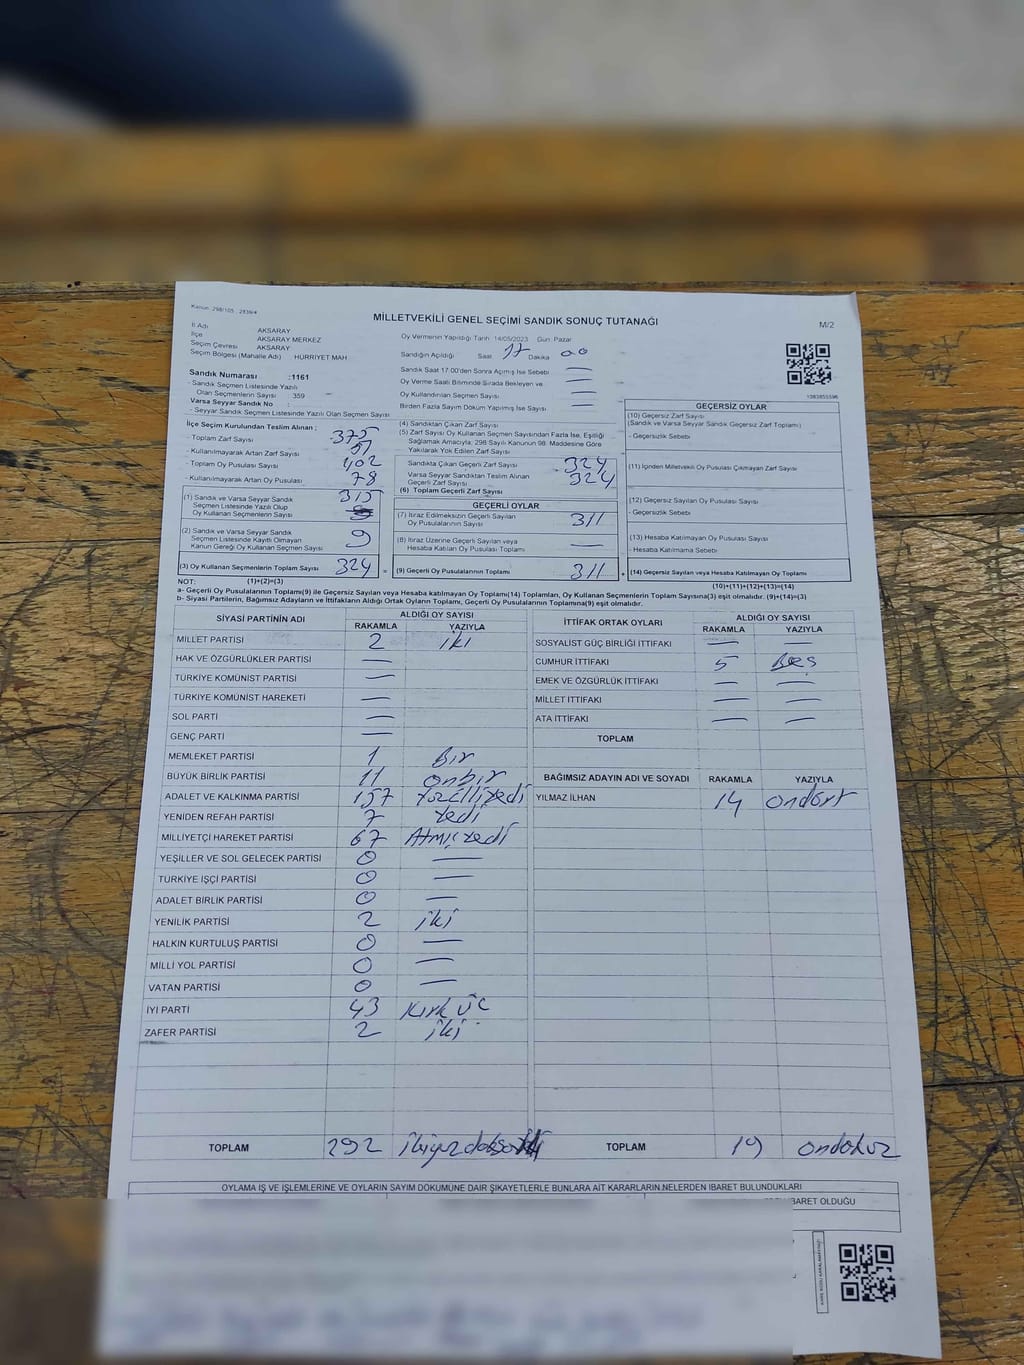 Kanun: 298/105 , 2839/4
MİLLETVEKİLİ GENEL SEÇİMİ SANDIK SONUÇ TUTANAĞI
M/2
İl Adı AKSARAY
İlçe AKSARAY MERKEZ
Seçim Çevresi AKSARAY
Seçim Bölgesi (Mahalle Adı) HÜRRİYET MAH
Sandık Numarası :1161
- Sandık Seçmen Listesinde Yazılı
Olan Seçmenlerin Sayısı : 359
Varsa Seyyar Sandık No :
- Seyyar Sandık Seçmen Listesinde Yazılı Olan Seçmen Sayısı
Oy Vermenin Yapıldığı Tarih 14/05/2023 Gün: Pazar
Sandığın Açıldığı Saat 17 Dakika 00
Sandık Saat 17:00'den Sonra Açılmış İse Sebebi —
Oy Verme Saati Bitiminde Sırada Bekleyen ve —
Oy Kullandırılan Seçmen Sayısı —
Birden Fazla Sayım Döküm Yapılmış İse Sayısı —
1083855596
İlçe Seçim Kurulundan Teslim Alınan ;
- Toplam Zarf Sayısı 375
- Kullanılmayarak Artan Zarf Sayısı 51
- Toplam Oy Pusulası Sayısı 402
- Kullanılmayarak Artan Oy Pusulası 78
(1) Sandık ve Varsa Seyyar Sandık 315
Seçmen Listesinde Yazılı Olup
Oy Kullanan Seçmenlerin Sayısı
(2) Sandık ve Varsa Seyyar Sandık
Seçmen Listesinde Kayıtlı Olmayan 9
Kanun Gereği Oy Kullanan Seçmen Sayısı
(3) Oy Kullanan Seçmenlerin Toplam Sayısı 324
(4) Sandıktan Çıkan Zarf Sayısı
(5) Zarf Sayısı Oy Kullanan Seçmen Sayısından Fazla İse, Eşitliği
Sağlamak Amacıyla; 298 Sayılı Kanunun 98. Maddesine Göre
Yakılarak Yok Edilen Zarf Sayısı
Sandıkta Çıkan Geçerli Zarf Sayısı 324
Varsa Seyyar Sandıktan Teslim Alınan 324
Geçerli Zarf Sayısı
(6) Toplam Geçerli Zarf Sayısı
GEÇERLİ OYLAR
(7) İtiraz Edilmeksizin Geçerli Sayılan
Oy Pusulalarının Sayısı 311
(8) İtiraz Üzerine Geçerli Sayılan veya
Hesaba Katılan Oy Pusulası Toplamı —
= (9) Geçerli Oy Pusulalarının Toplamı 311
GEÇERSİZ OYLAR
(10) Geçersiz Zarf Sayısı
(Sandık ve Varsa Seyyar Sandık Geçersiz Zarf Toplamı)
- Geçersizlik Sebebi
(11) İçinden Milletvekili Oy Pusulası Çıkmayan Zarf Sayısı
(12) Geçersiz Sayılan Oy Pusulası Sayısı
- Geçersizlik Sebebi
(13) Hesaba Katılmayan Oy Pusulası Sayısı
- Hesaba Katılmama Sebebi
+ (14) Geçersiz Sayılan veya Hesaba Katılmayan Oy Toplamı
NOT: (1)+(2)=(3) (10)+(11)+(12)+(13)=(14)
a- Geçerli Oy Pusulalarının Toplamı(9) ile Geçersiz Sayılan veya Hesaba katılmayan Oy Toplamı(14) Toplamları, Oy Kullanan Seçmenlerin Toplam Sayısına(3) eşit olmalıdır. (9)+(14)=(3)
b- Siyasi Partilerin, Bağımsız Adayların ve İttifakların Aldığı Ortak Oyların Toplamı, Geçerli Oy Pusulalarının Toplamına(9) eşit olmalıdır.
SİYASİ PARTİNİN ADI ALDIĞI OY SAYISI
RAKAMLA YAZIYLA
MİLLET PARTİSİ 2 iki
HAK VE ÖZGÜRLÜKLER PARTİSİ —
TÜRKİYE KOMÜNİST PARTİSİ —
TÜRKİYE KOMÜNİST HAREKETİ —
SOL PARTİ —
GENÇ PARTİ —
MEMLEKET PARTİSİ 1 Bir
BÜYÜK BİRLİK PARTİSİ 11 onbir
ADALET VE KALKINMA PARTİSİ 157 Yüzelliyedi
YENİDEN REFAH PARTİSİ 7 Yedi
MİLLİYETÇİ HAREKET PARTİSİ 67 Atmışyedi
YEŞİLLER VE SOL GELECEK PARTİSİ 0 —
TÜRKİYE İŞÇİ PARTİSİ 0 —
ADALET BİRLİK PARTİSİ 0 —
YENİLİK PARTİSİ 2 iki
HALKIN KURTULUŞ PARTİSİ 0 —
MİLLİ YOL PARTİSİ 0 —
VATAN PARTİSİ 0 —
İYİ PARTİ 43 Kırk üç
ZAFER PARTİSİ 2 iki
TOPLAM 292
İTTİFAK ORTAK OYLARI ALDIĞI OY SAYISI
RAKAMLA YAZIYLA
SOSYALİST GÜÇ BİRLİĞİ İTTİFAKI — —
CUMHUR İTTİFAKI 5 Beş
EMEK VE ÖZGÜRLÜK İTTİFAKI — —
MİLLET İTTİFAKI — —
ATA İTTİFAKI — —
TOPLAM
BAĞIMSIZ ADAYIN ADI VE SOYADI RAKAMLA YAZIYLA
YILMAZ İLHAN 14 ondört
TOPLAM 19 ondokuz
OYLAMA İŞ VE İŞLEMLERİNE VE OYLARIN SAYIM DÖKÜMÜNE DAİR ŞİKAYETLERLE BUNLARA AİT KARARLARIN NELERDEN İBARET BULUNDUKLARI
İBARET OLDUĞU